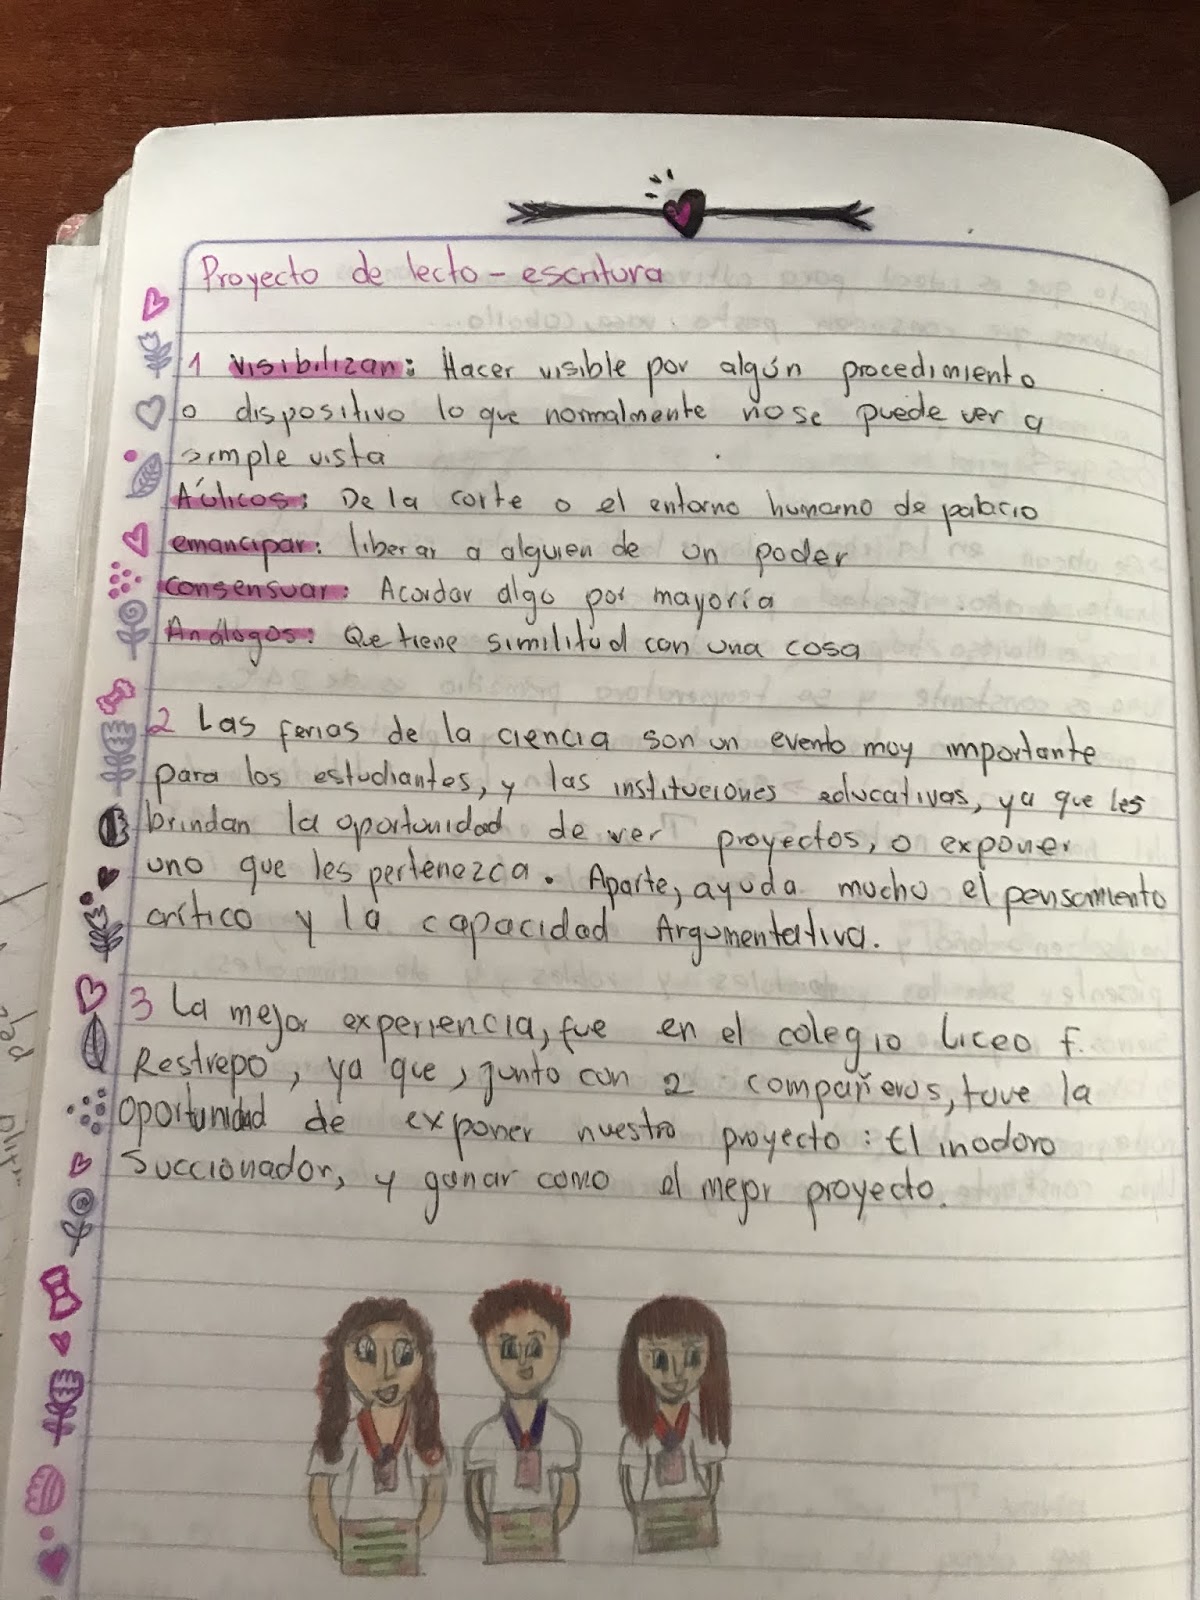 Proyecto de lecto - escritura
1 visibilizan: Hacer visible por algún procedimiento
o dispositivo lo que normalmente no se puede ver a
simple vista
Aúlicos: De la corte o el entorno humano de palacio
emancipar: liberar a alguien de un poder
consensuar: Acordar algo por mayoría
Análogos: Que tiene similitud con una cosa
2 Las ferias de la ciencia son un evento muy importante
para los estudiantes, y las instituciones educativas, ya que les
brindan la oportunidad de ver proyectos, o exponer
uno que les pertenezca. Aparte, ayuda mucho el pensamiento
crítico y la capacidad Argumentativa.
3 La mejor experiencia, fue en el colegio Liceo f.
Restrepo, ya que, junto con 2 compañeros, tuve la
oportunidad de exponer nuestro proyecto: El inodoro
Succionador, y ganar como el mejor proyecto.